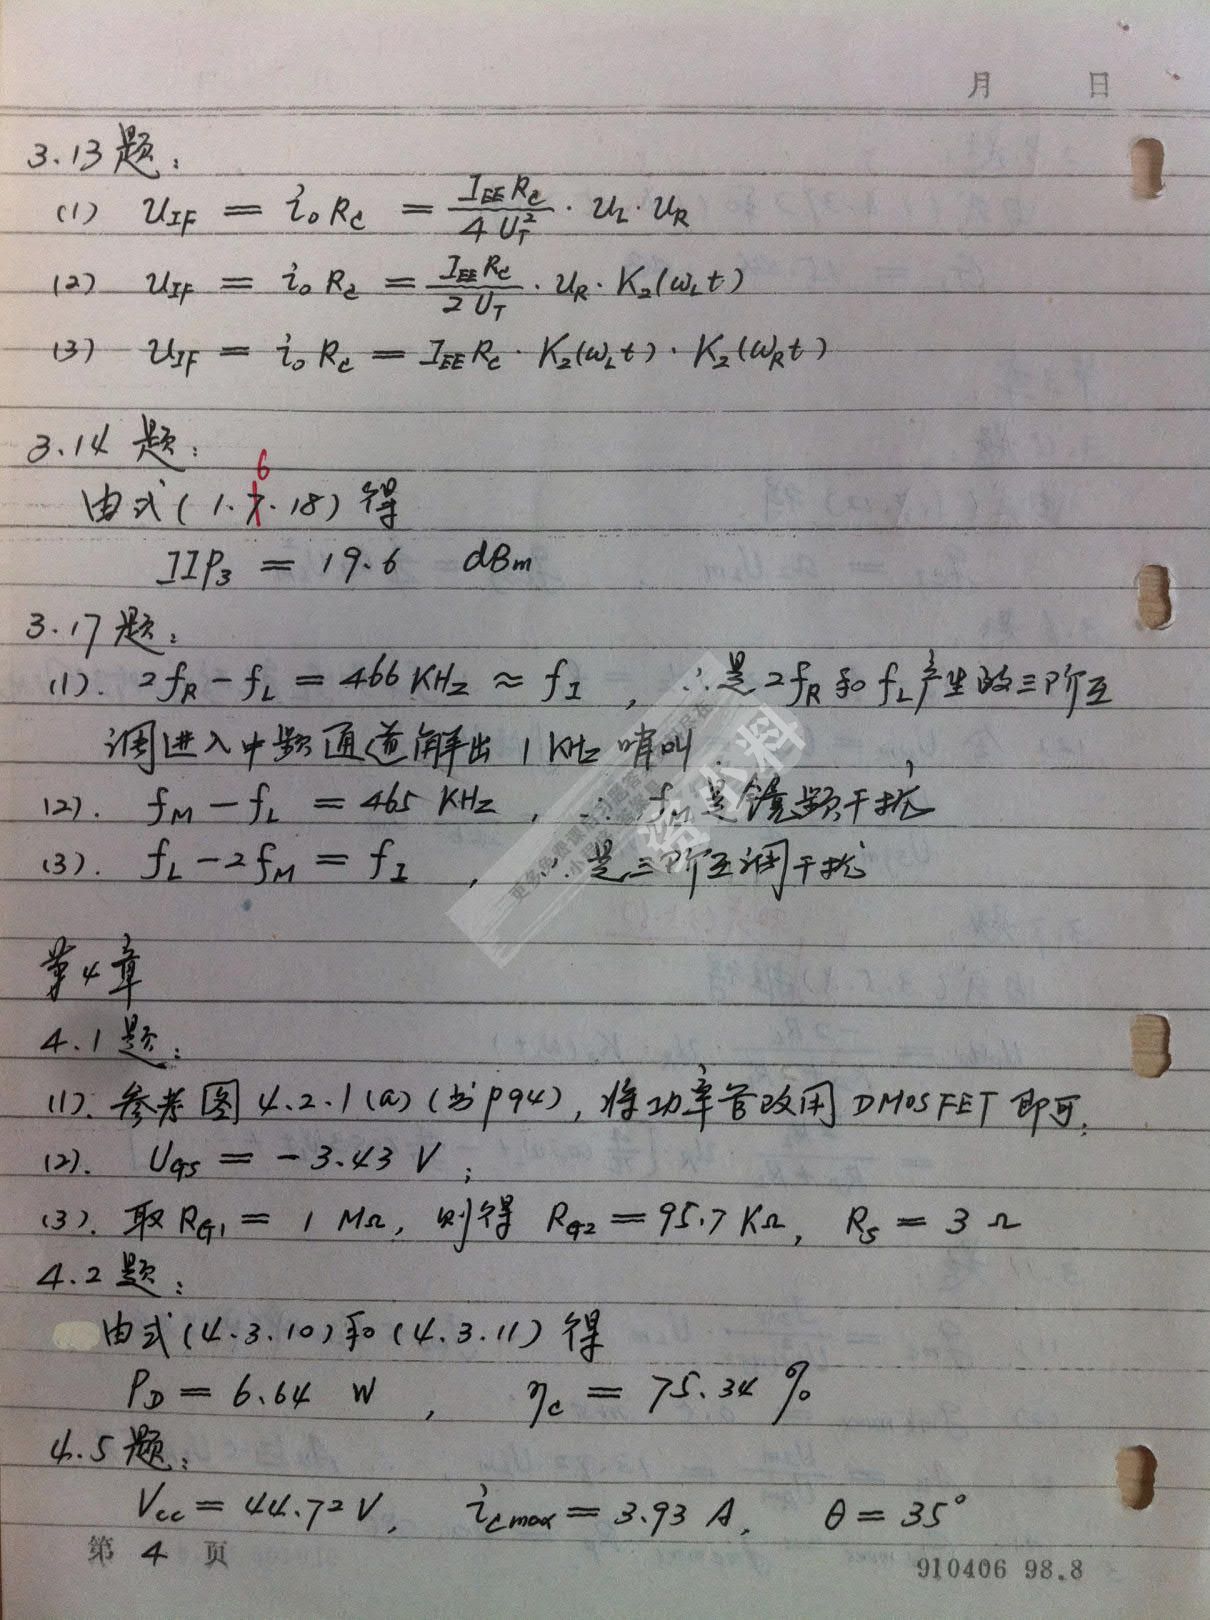 月 日
3.13题:
(1) u_IF = i_o R_c = I_EE R_c / 4U_T^2 · u_L · u_R
(2) u_IF = i_o R_c = I_EE R_c / 2U_T · u_R · K_2(ω_L t)
(3) u_IF = i_o R_c = I_EE R_c · K_2(ω_L t) · K_2(ω_R t)
3.14题:
6
由式(1.7.18)得
IIP_3 = 19.6 dBm
3.17题:
(1). 2f_R - f_L = 466 KHz ≈ f_I , ∴是2f_R和f_L产生的三阶互
调进入中频通道解出1KHz哨叫.
(2). f_M - f_L = 465 KHz , ∴ f_M是镜频干扰
(3). f_L - 2f_M = f_I , ∴是三阶互调干扰
第4章
4.1题:
(1). 参考图4.2.1(a)(书P94), 将功率管改用DMOSFET即可.
(2). U_GS = -3.43 V ;
(3). 取R_G1 = 1 MΩ, 则得 R_G2 = 95.7 KΩ, R_S = 3 Ω
4.2题:
由式(4.3.10)和(4.3.11)得
P_D = 6.64 W , η_c = 75.34 %
4.5题:
V_cc = 44.72V, i_cmax = 3.93 A, θ = 35°
第 4 页
910406 98.8